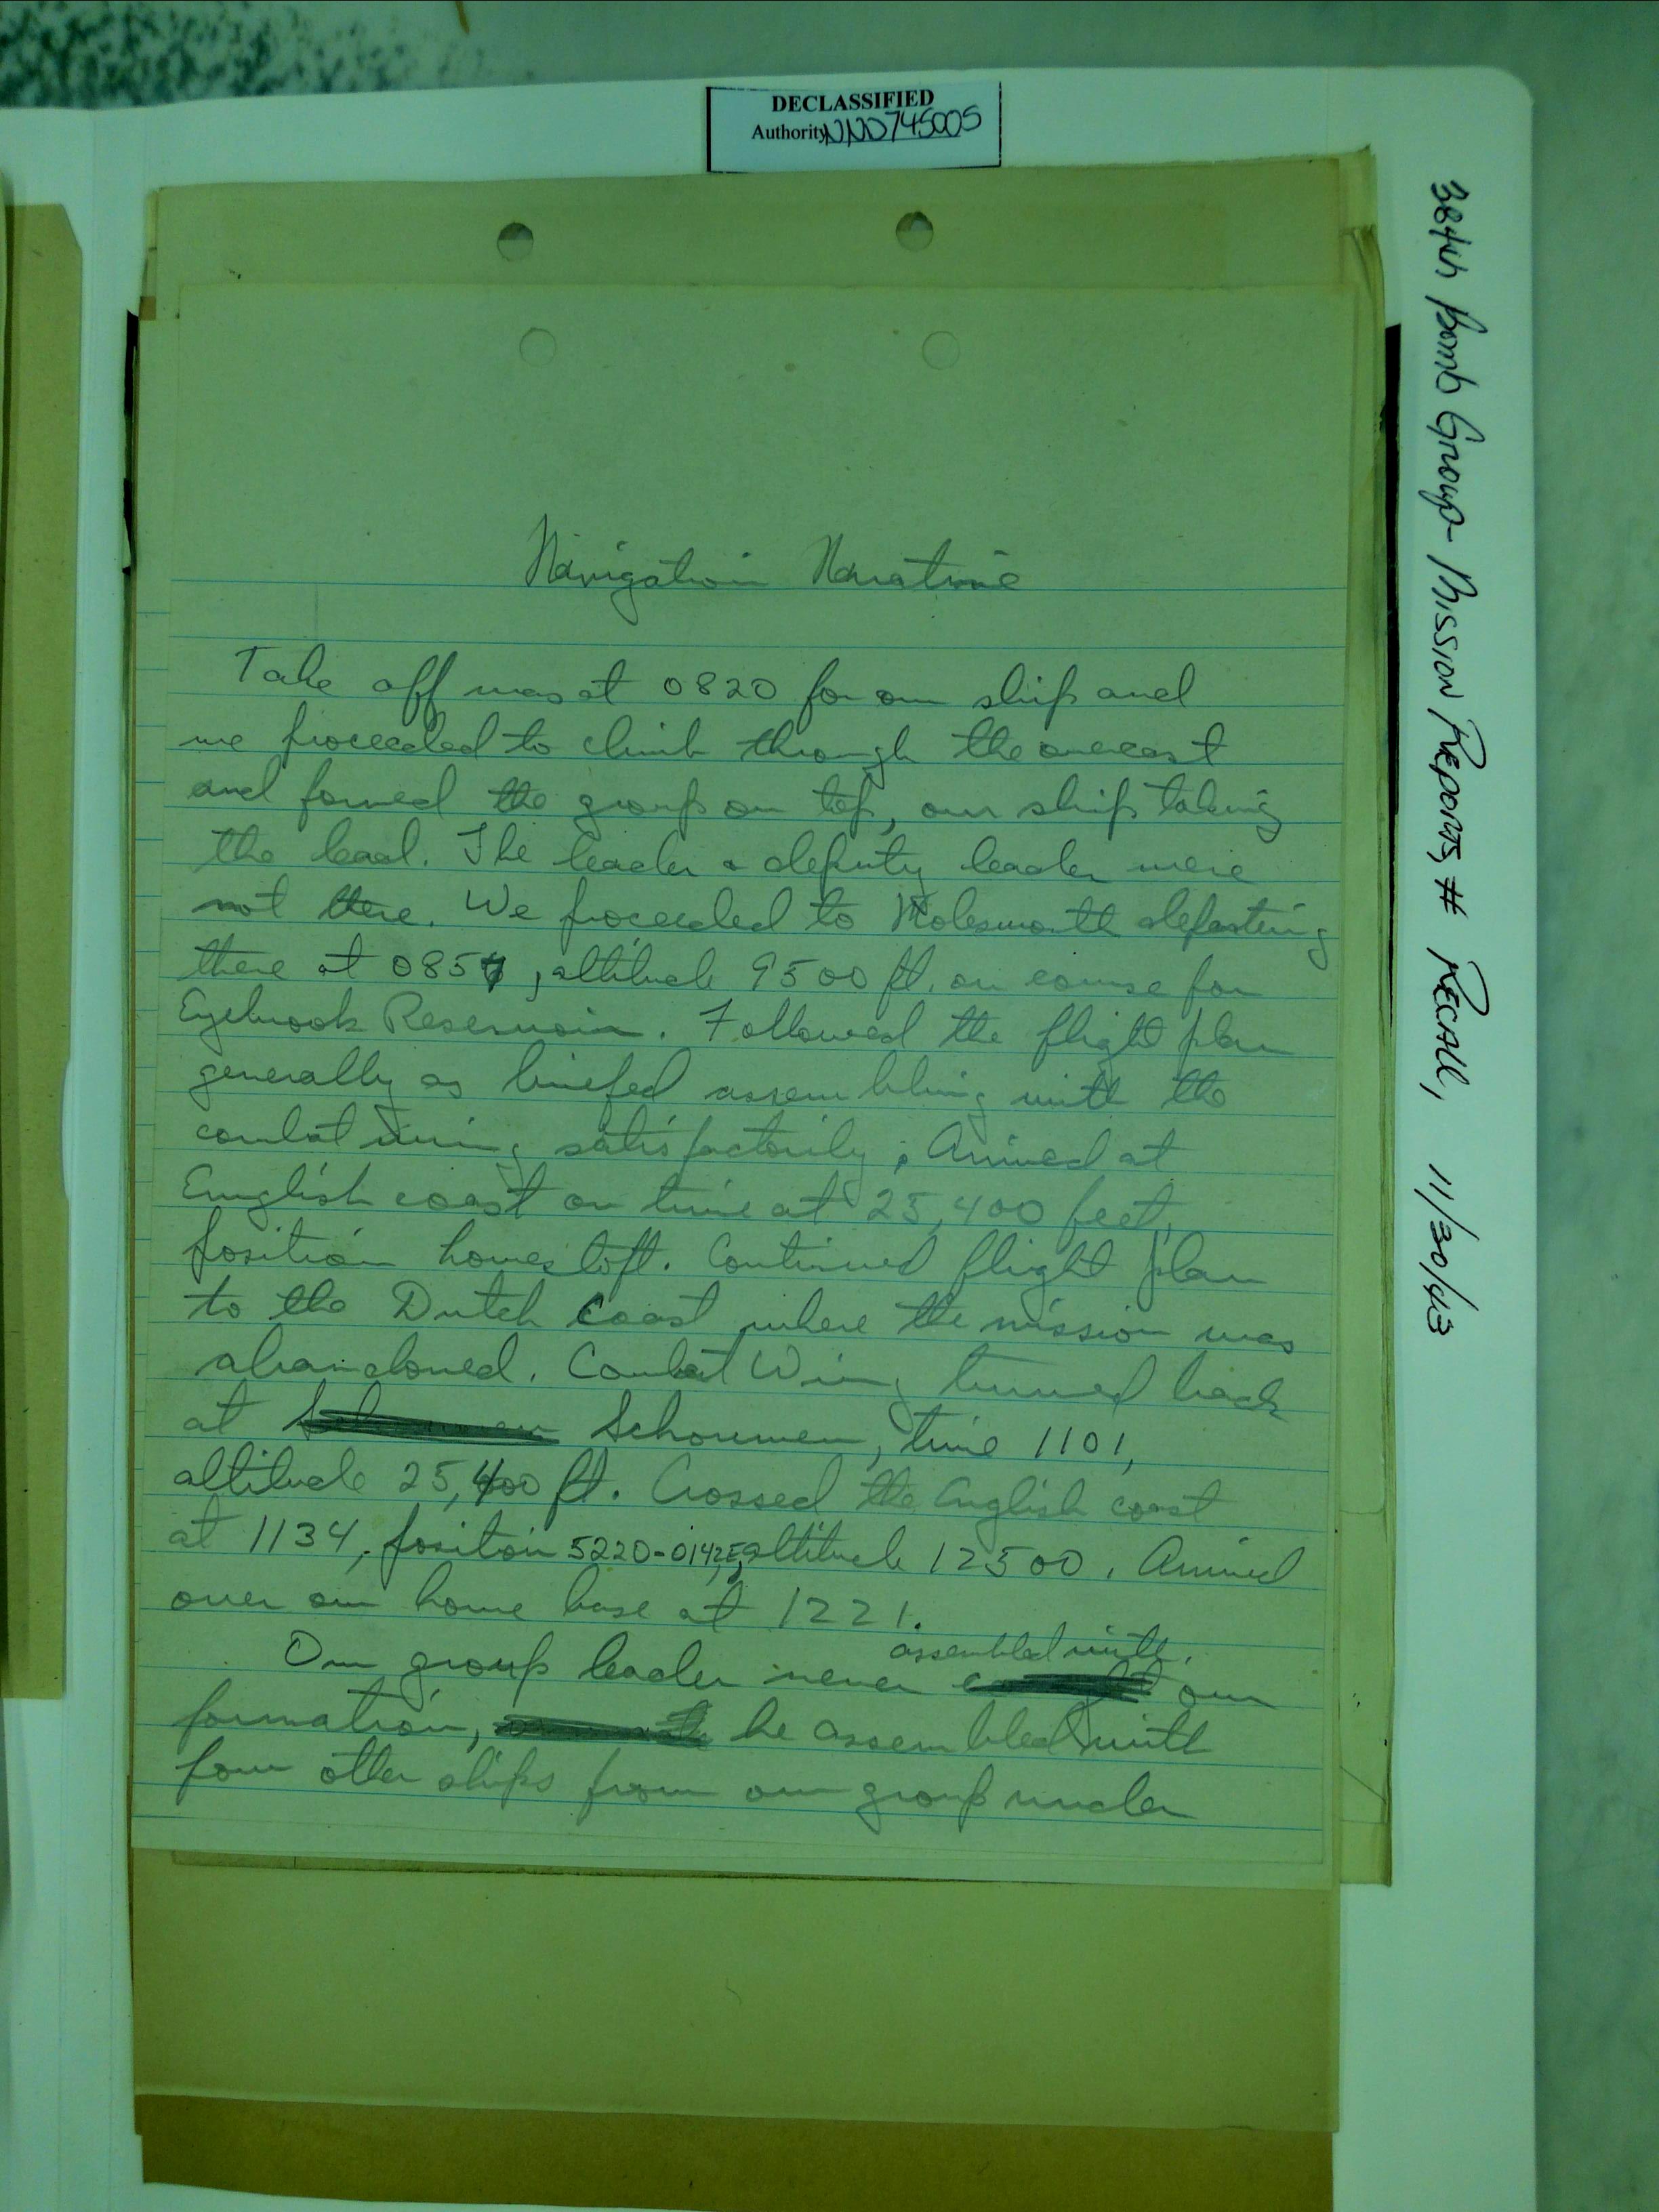 DECLASSIFIED
Authority NND745005
384th Bomb Group Mission Reports, # RECALL, 11/30/43
Navigation Narative
Take off was at 0820 for our ship and
we proceeded to climb through the overcast
and formed the group on top, our ship taking
the lead. The leader & deputy leader were
not there. We proceeded to Molesworth departing
there at 0857, altitude 9500 ft. on course for
Eyebrook Reservoir. Followed the flight plan
generally as briefed assembling with the
combat wing satisfactorily. Arrived at
English coast on time at 25,400 feet,
position lowestoft. Continued flight plan
to the Dutch Coast where the mission was
abandoned. Combat Wing turned back
at Schouwen, time 1101,
altitude 25,400 ft. Crossed the English coast
at 1134, position 5220-0142E, altitude 12500. Arrived
over our home base at 1221.
Our group leader never assembled with our
formation, he assembled with
four other ships from our group under